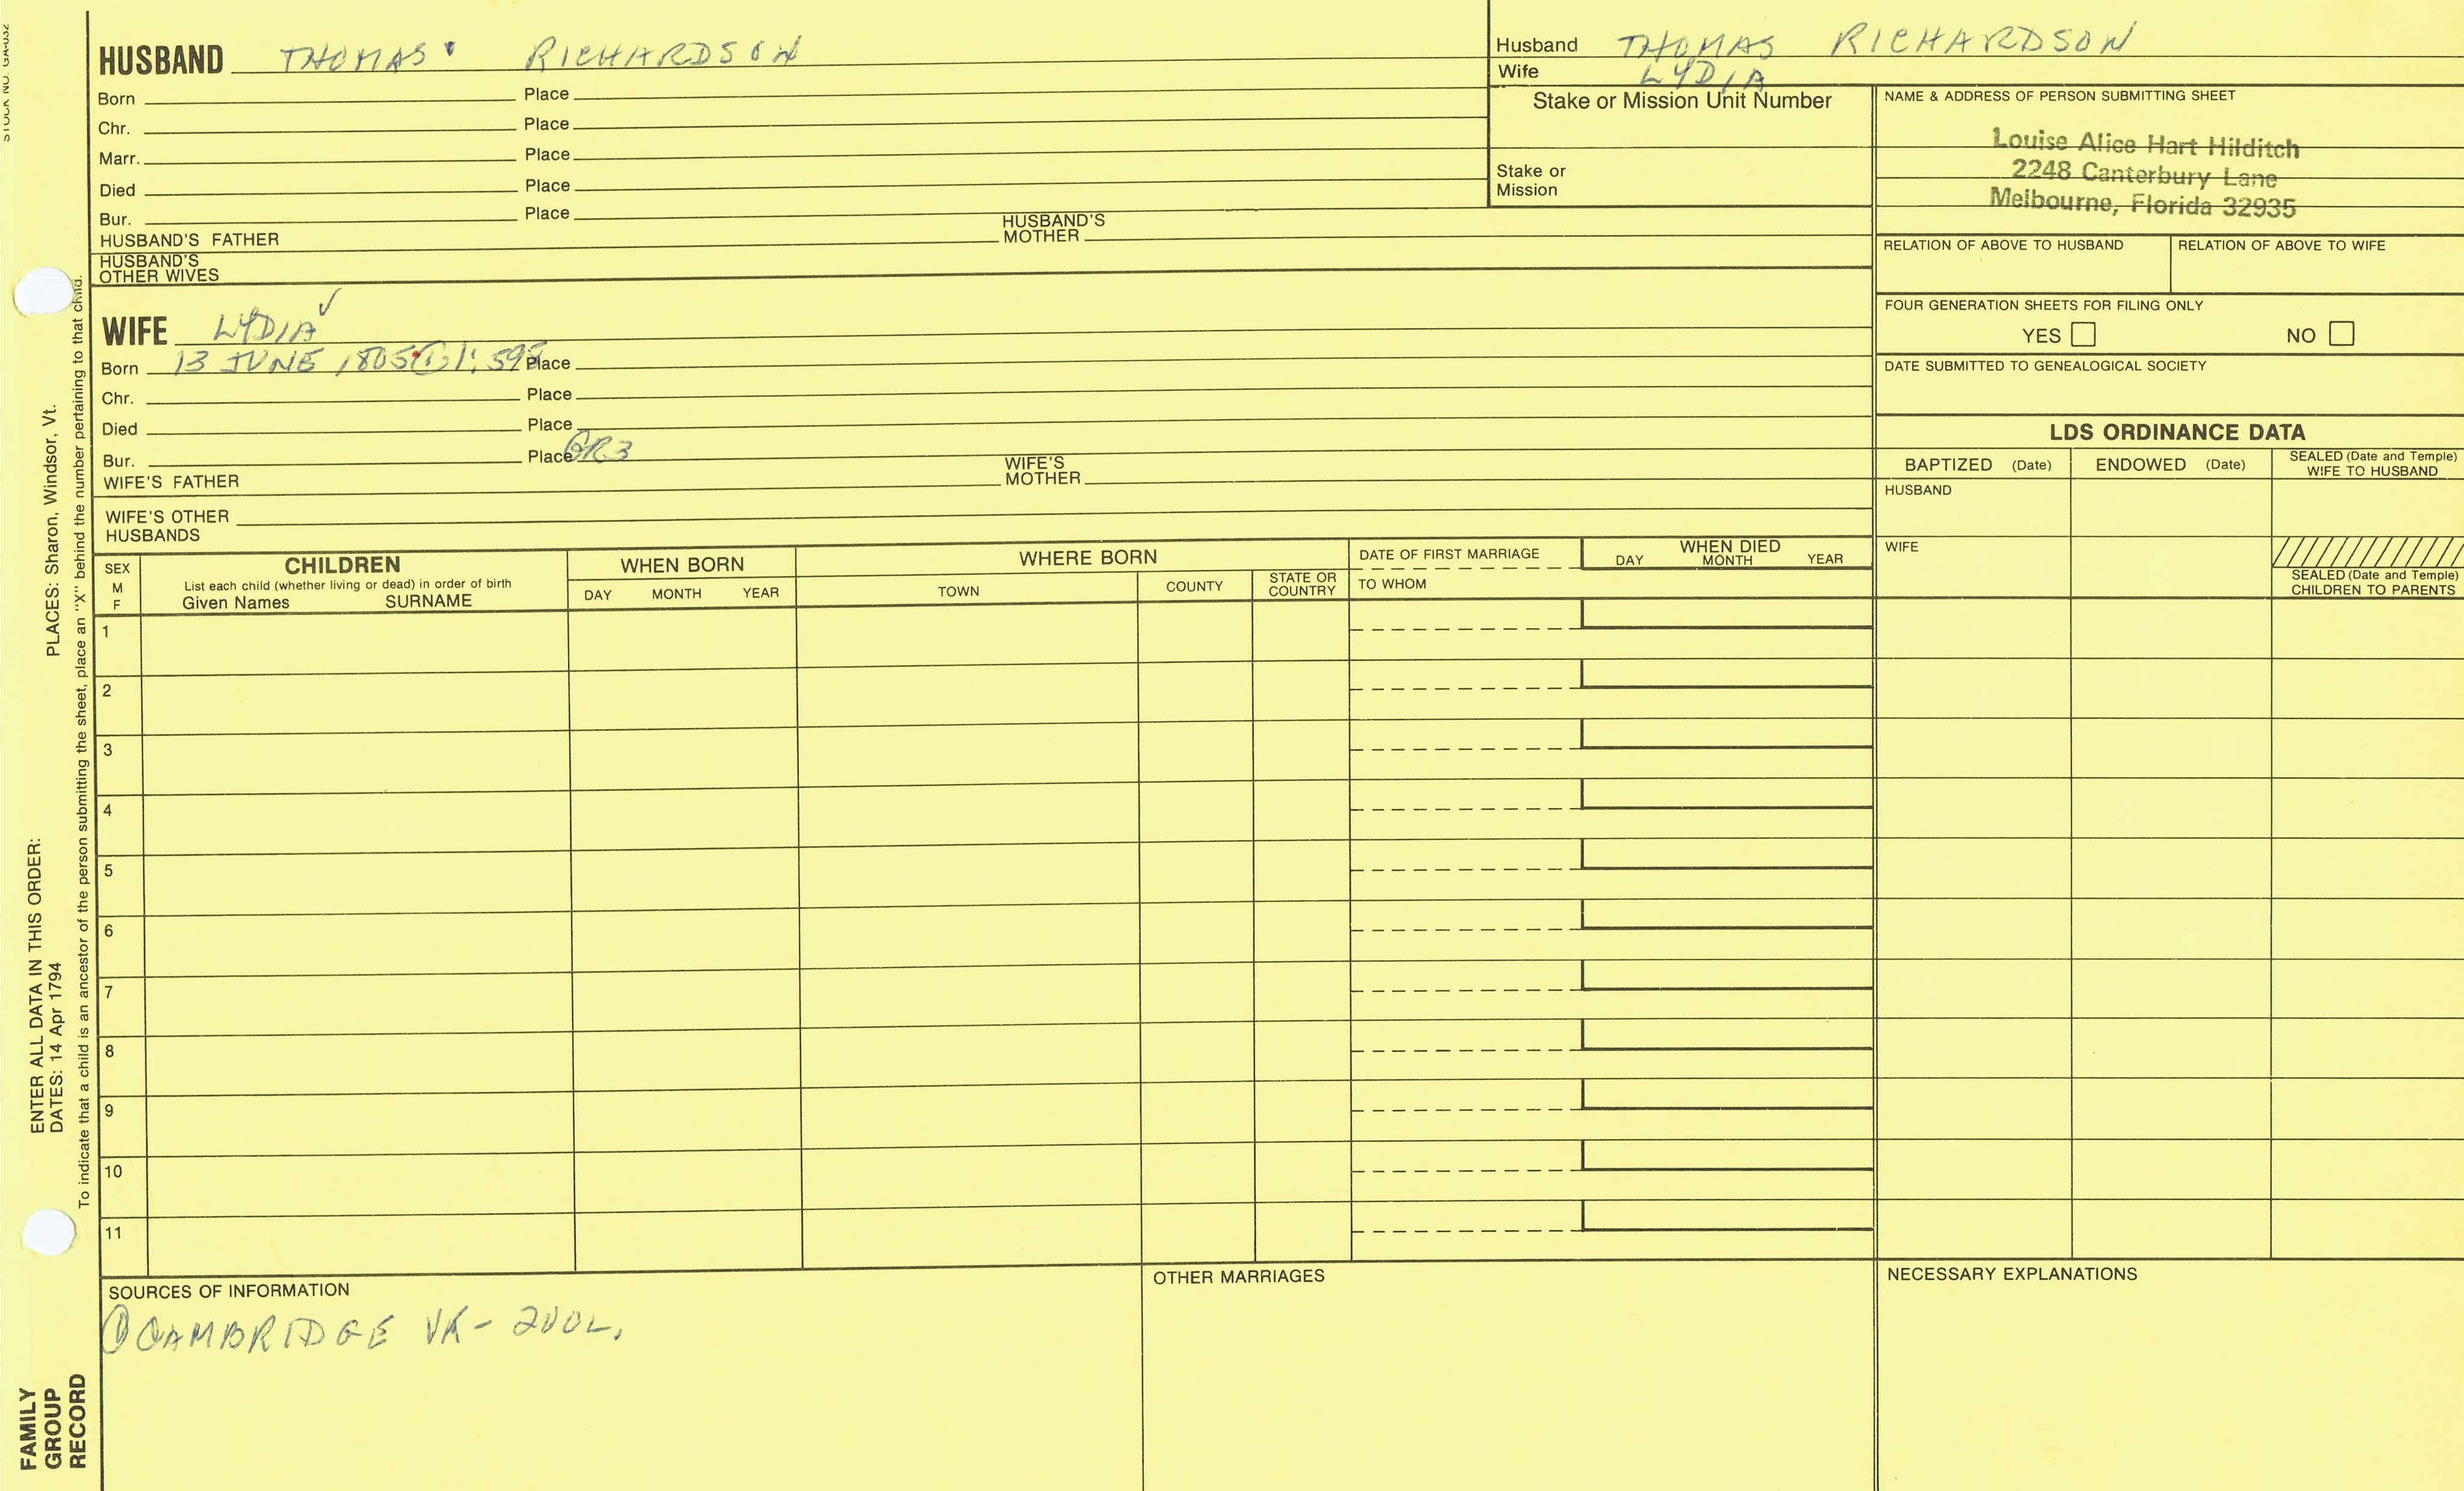 STOCK NO. GA-032
HUSBAND THOMAS RICHARDSON
Born Place
Chr. Place
Marr. Place
Died Place
Bur. Place
HUSBAND'S FATHER HUSBAND'S MOTHER
HUSBAND'S OTHER WIVES
Husband THOMAS RICHARDSON
Wife LYDIA
Stake or Mission Unit Number
Stake or
Mission
NAME & ADDRESS OF PERSON SUBMITTING SHEET
Louise Alice Hart Hilditch
2248 Canterbury Lane
Melbourne, Florida 32935
RELATION OF ABOVE TO HUSBAND RELATION OF ABOVE TO WIFE
FOUR GENERATION SHEETS FOR FILING ONLY
YES NO
DATE SUBMITTED TO GENEALOGICAL SOCIETY
WIFE LYDIA ✓
Born 13 JUNE 1805 ① 1:598 Place
Chr. Place
Died Place
Bur. Place GR3
WIFE'S FATHER WIFE'S MOTHER
WIFE'S OTHER HUSBANDS
LDS ORDINANCE DATA
BAPTIZED (Date) ENDOWED (Date) SEALED (Date and Temple) WIFE TO HUSBAND
HUSBAND
WIFE
SEALED (Date and Temple) CHILDREN TO PARENTS
SEX M F
CHILDREN
List each child (whether living or dead) in order of birth
Given Names SURNAME
WHEN BORN
DAY MONTH YEAR
WHERE BORN
TOWN COUNTY STATE OR COUNTRY
DATE OF FIRST MARRIAGE
TO WHOM
WHEN DIED
DAY MONTH YEAR
1
2
3
4
5
6
7
8
9
10
11
SOURCES OF INFORMATION
① CAMBRIDGE VR-
OTHER MARRIAGES
NECESSARY EXPLANATIONS
PLACES: Sharon, Windsor, Vt.
ENTER ALL DATA IN THIS ORDER:
DATES: 14 Apr 1794
To indicate that a child is an ancestor of the person submitting the sheet, place an "X" behind the number pertaining to that child.
FAMILY
GROUP
RECORD